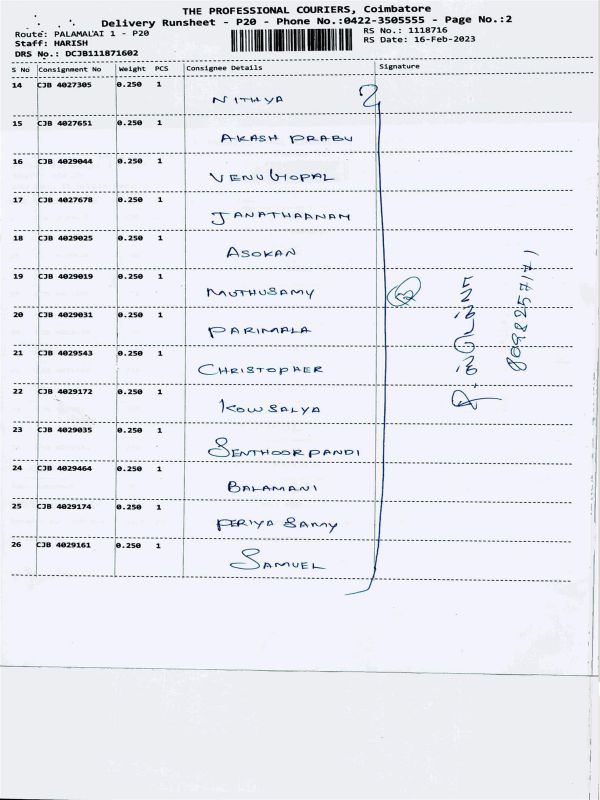 THE PROFESSIONAL COURIERS, Coimbatore
Delivery Runsheet - P20 - Phone No.:0422-3505555 - Page No.:2
Route: PALAMALAI 1 - P20 RS No.: 1118716
Staff: HARISH RS Date: 16-Feb-2023
DRS No.: DCJB111871602
S No Consignment No Weight PCS Consignee Details Signature
14 CJB 4027305 0.250 1 NITHYA
15 CJB 4027651 0.250 1 AKASH PRABU
16 CJB 4029044 0.250 1 VENUGOPAL
17 CJB 4027678 0.250 1 JANATHAANAM
18 CJB 4029025 0.250 1 ASOKAN
19 CJB 4029019 0.250 1 MUTHUSAMY
20 CJB 4029031 0.250 1 PARIMALA
21 CJB 4029543 0.250 1 CHRISTOPHER
22 CJB 4029172 0.250 1 KOWSALYA
23 CJB 4029035 0.250 1 SENTHOORPANDI
24 CJB 4029464 0.250 1 BALAMANI
25 CJB 4029174 0.250 1 PERIYA SAMY
26 CJB 4029161 0.250 1 SAMUEL
8098257171